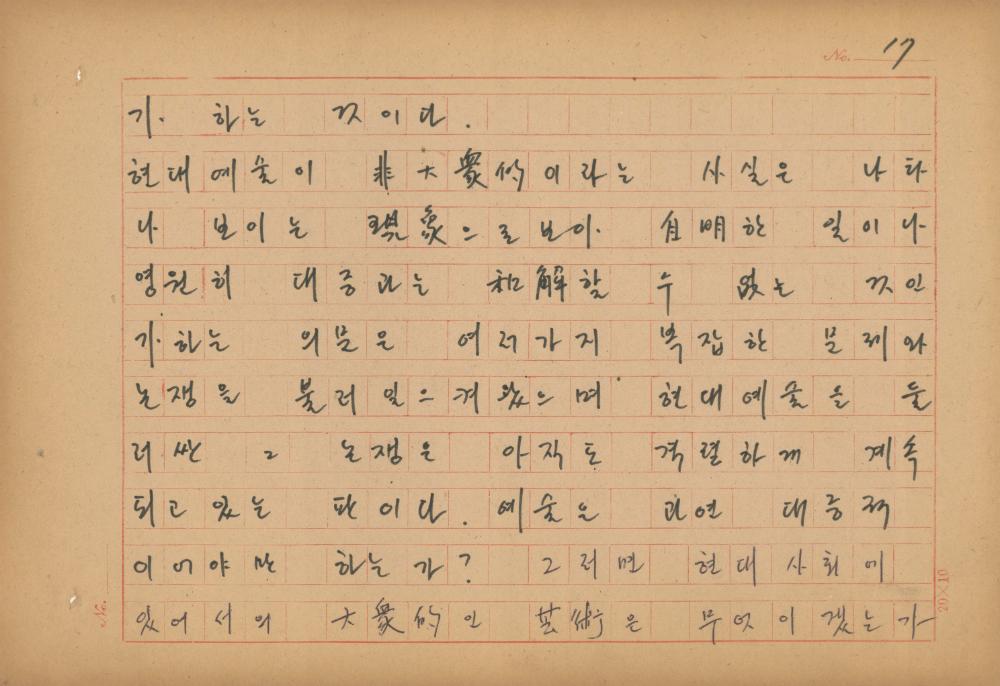 No. 17
가. 하는 것이다.
현대예술이 非大衆的이라는 사실은 나타
나 보이는 現象으로보아. 自明한 일이나
영원히 대중과는 和解할 수 없는 것인
가.하는 의문은 여러가지 복잡한 문제와
논쟁을 불러일으켜왔으며 현대예술을 둘
러싼 그 논쟁은 아직도 격렬하게 계속
되고있는 판이다. 예술은 과연 대중적
이어야만 하는가? 그러면 현대사회에
있어서의 大衆的인 芸術은 무엇이겠는가
No.
20×10